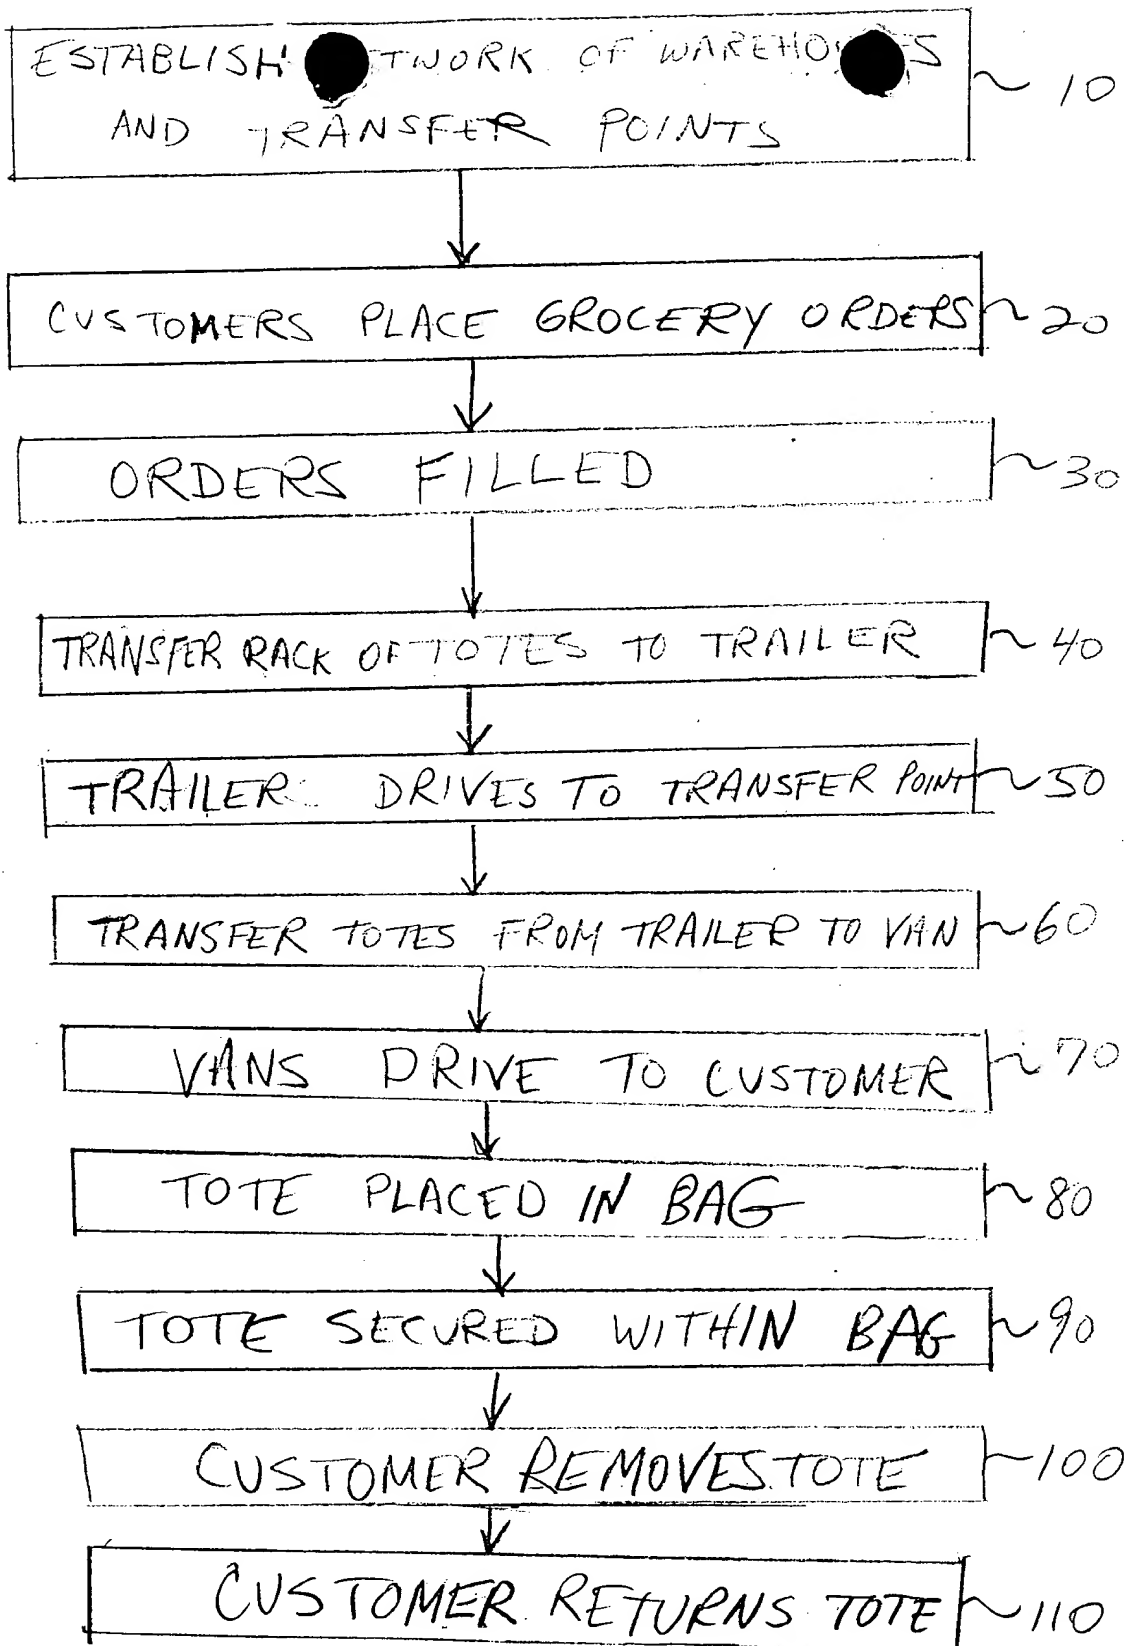 ESTABLISH TWORK OF WAREHO S
AND TRANSFER POINTS
10
CUSTOMERS PLACE GROCERY ORDERS
20
ORDERS FILLED
30
TRANSFER RACK OF TOTES TO TRAILER
40
TRAILER DRIVES TO TRANSFER POINT
50
TRANSFER TOTES FROM TRAILER TO VAN
60
VANS DRIVE TO CUSTOMER
70
TOTE PLACED IN BAG
80
TOTE SECURED WITHIN BAG
90
CUSTOMER REMOVES TOTE
100
CUSTOMER RETURNS TOTE
110